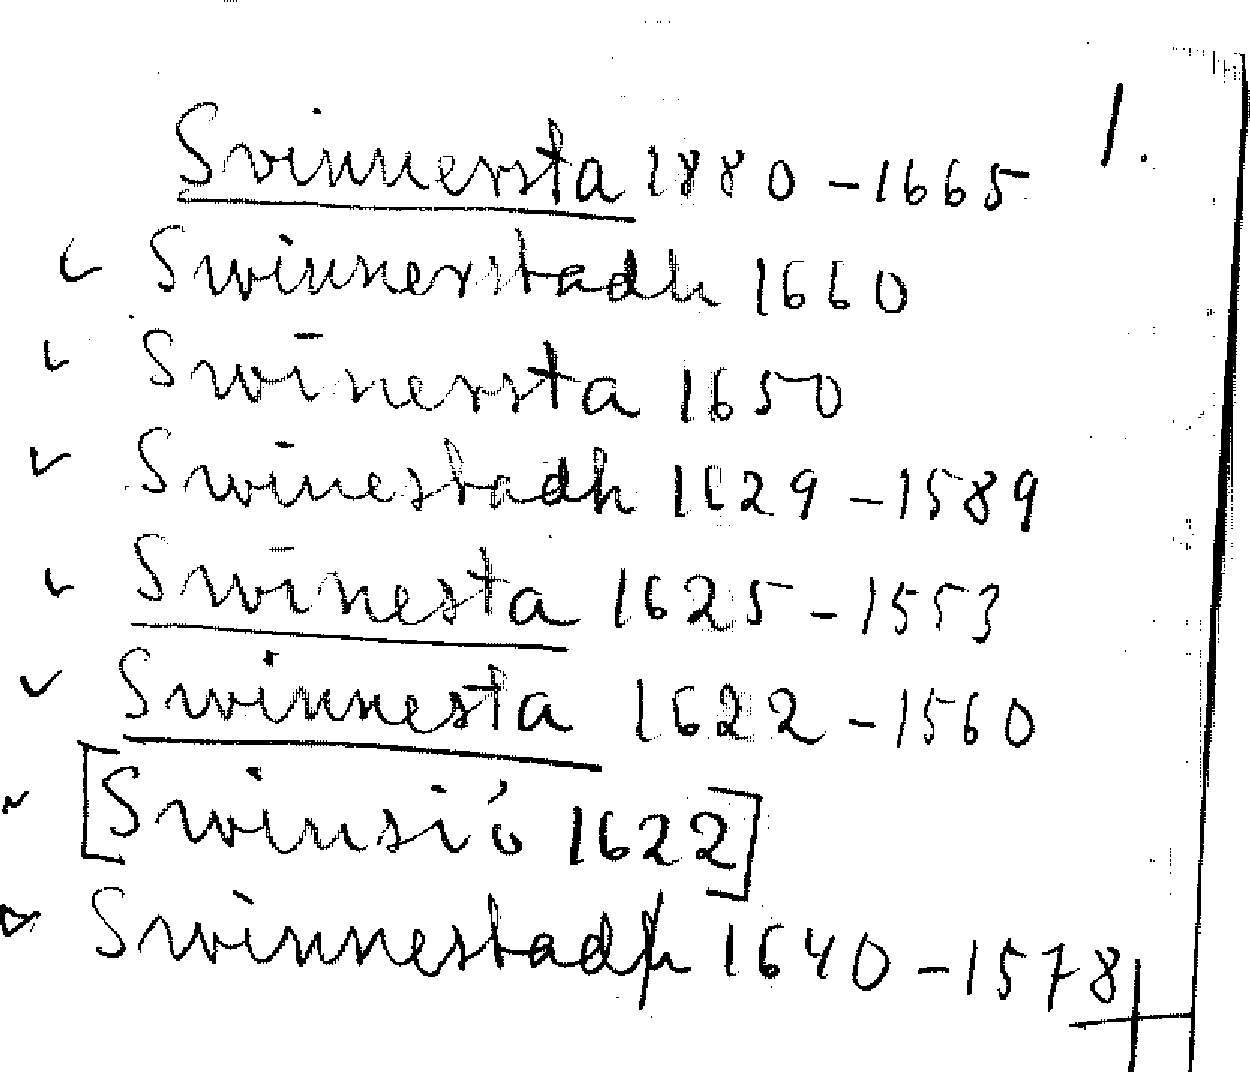 1.
Svinnersta 1880-1665
Swinnerstadh 1660
Swinersta 1650
Swinestadh 1629-1589
Swinesta 1625-1553
Swinnesta 1622-1560
[Swinsió 1622]
Swinnestadh 1640-1578